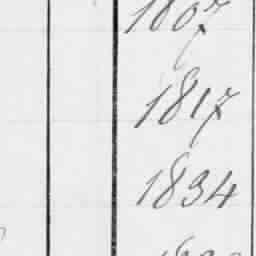 1807
1817
1834